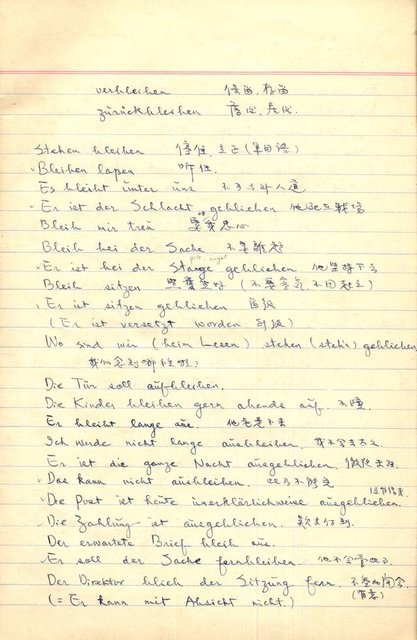 verbleiben
zurückbleiben 落後
Stehen bleiben 停住, 立正 (軍用語)
Bleiben lassen 听任
Es bleibt unter uns 不可与外人道
Er ist in der Schlacht geblichen 他死在戰場
Bleib mir treu 忠心
Bleib bei der Sache 不要離題
Er ist bei der Stange geblichen 他坚持下去
Bleib sitzen (不要客氣, 不用起立)
Er ist sitzen geblichen 留級
(Er ist versetzt worden 升級)
Wo sind wir (beim Lesen) stehen (stehn) geblichen
我們念到哪裡啦?
Die Tür soll aufbleiben.
Die Kinder bleiben gern abends auf. 不睡
Er bleibt lange aus. 他老是不来
Ich werde nicht lange ausbleiben. 我不会去太久
Er ist die ganze Nacht ausgeblichen. 徹夜未歸
Das kann nicht ausbleiben. 此乃不能免
Die Post ist heute unerklärlichweise ausgeblichen.
Die Zahlung ist ausgeblichen. 款未付到
Der erwartete Brief blieb aus.
Er soll der Sache fernbleiben. 他不会
Der Direktor blieb der Sitzung fern. 不参加開会
(= Er kam mit Absicht nicht.) (有意)